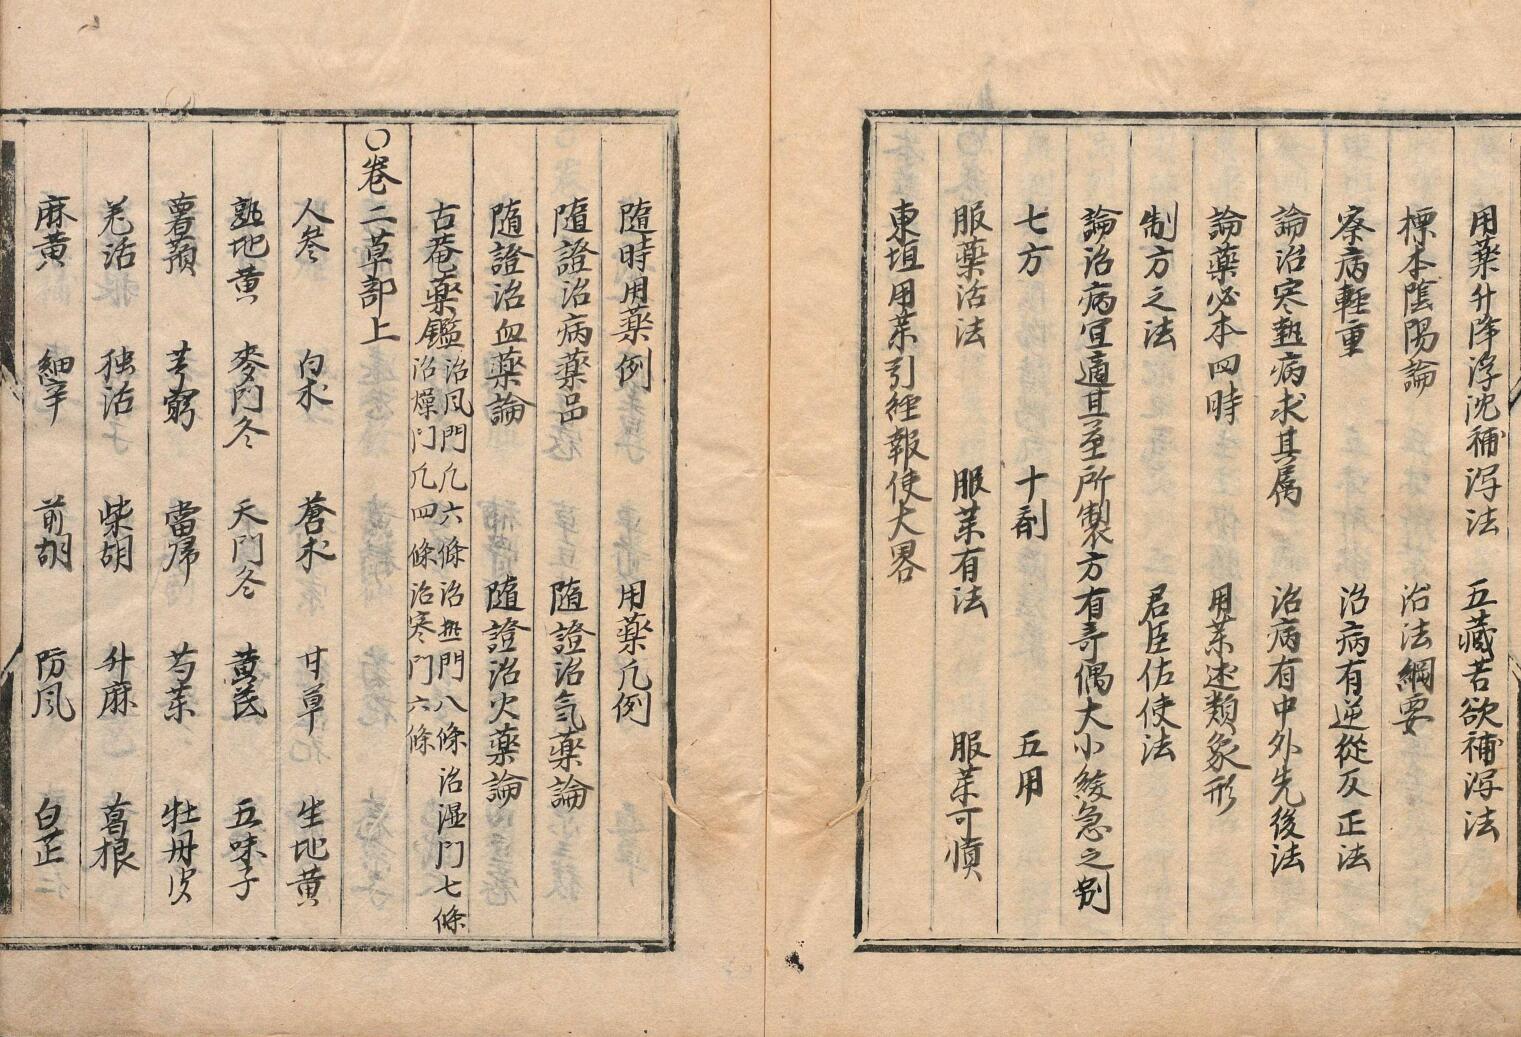 用藥升降浮沈補瀉法　五藏苦欲補瀉法
標本陰陽論　治法綱要
察病輕重　治病有逆從反正法
論治寒熱病求其属　治病有中外先後法
論藥必本四時　用茱述類象形
制方之法　君臣佐使法
論治病宜適其至所製方有奇偶大小緩急之别
七方　十剤　五用
服藥活法　服茱有法　服茱可慎
東垣用茱引經報使大畧
随時用藥例　用藥凡例
随證治病藥品　随證治氣藥論
随證治血藥論　随證治火藥論
古菴藥鑑　治风門凡六條　治热門八條　治湿門七條
治燥門凡四條　治寒門六條
〇卷二草部上
人参　白术　蒼术　甘草　生地黄
熟地黄　麥門冬　天門冬　黄芪　五味子
薯蕷　芎藭　當帰　芍茱　牡丹皮
羌活　独活　柴胡　升麻　葛根
麻黄　細辛　前胡　防风　白芷